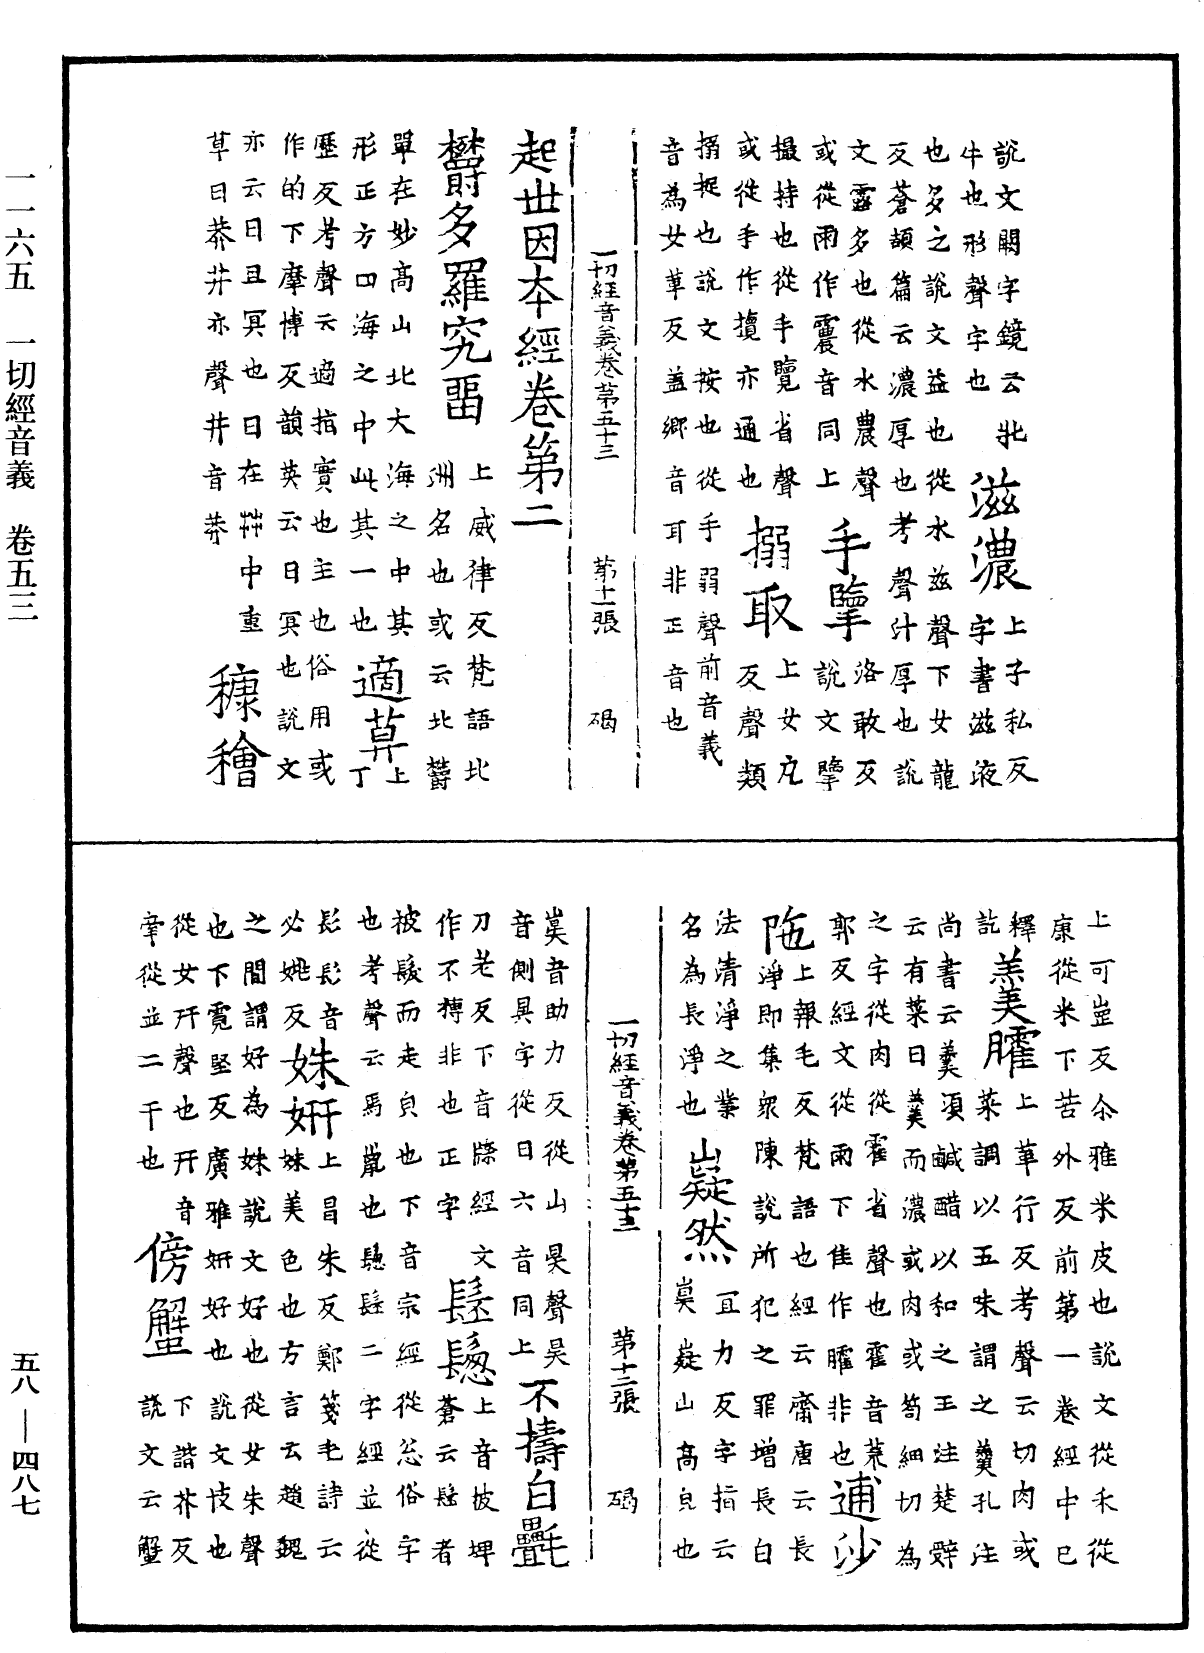 說文闕字鏡云牝
牛也形聲字也
滋濃
上子私反
字書滋液
也多之說文益也從水兹聲下女龍
反蒼頡篇云濃厚也考聲汁厚也說
文露多也從水農聲
或從雨作震音同上
手擥
洛敢反
說文擥
撮持也從手覽省聲
或從手作㩜亦通也
搦取
上女戹
反聲類
搦捉也說文按也從手弱聲前音義
音為女革反盖鄉音耳非正音也
一切經音義卷第五十三 第十一張 碣
起世因本經卷第二
欝多羅究畱
上威律反梵語北
洲名也或云北欝
單在妙高山北大海之中其
形正方四海之中此其一也
適莫
上丁
歷反考聲云適指實也主也俗用或
作的下摩博反韻英云日冥也說文
亦云日且冥也日在茻中重
草曰莽茻亦聲茻音莽
穅繪
上可崑反尒雅米皮也說文從禾從
康從米下苦外反前第一卷經中已
釋
羔美臛
上革行反考聲云切肉或
菜調以五味謂之羹孔注
訖
尚書云羹須鹹醋以和之王注楚辭
云有菜曰羹而濃或肉或筍細切為
之字從肉從霍省聲也霍音荒
郭反經文從雨下隹作臛非也
逋沙陁
上報毛反梵語也經云齋唐云長
淨即集衆陳說所犯之罪增長白
法清淨之業
名為長淨也
嶷然
冝力反字指云
㠜嶷山高皃也
一切經音義卷第五十三 第十二張 碣
㠜音助力反從山昃聲昃
音側具字從日六音同上
不擣白㲲
刀老反下音牒經文
作不槫非也正字
髬髽
上音披埤
蒼云髬者
被髮而走皃也下音宗經從忩俗字
也考聲云馬鬛也髽髬二字經並從
髟髟音
必姚反
姝妍
上昌朱反鄭箋毛詩云
姝美色也方言云趙魏
之間謂好為姝說文好也從女朱聲
也下霓堅反廣雅妍好也說文忮也
從女幵聲也幵音
牽從並二干也
傍蟹
下諧芥反
說文云蟹
一一六五 一切經音義 卷五三
五八—四八七